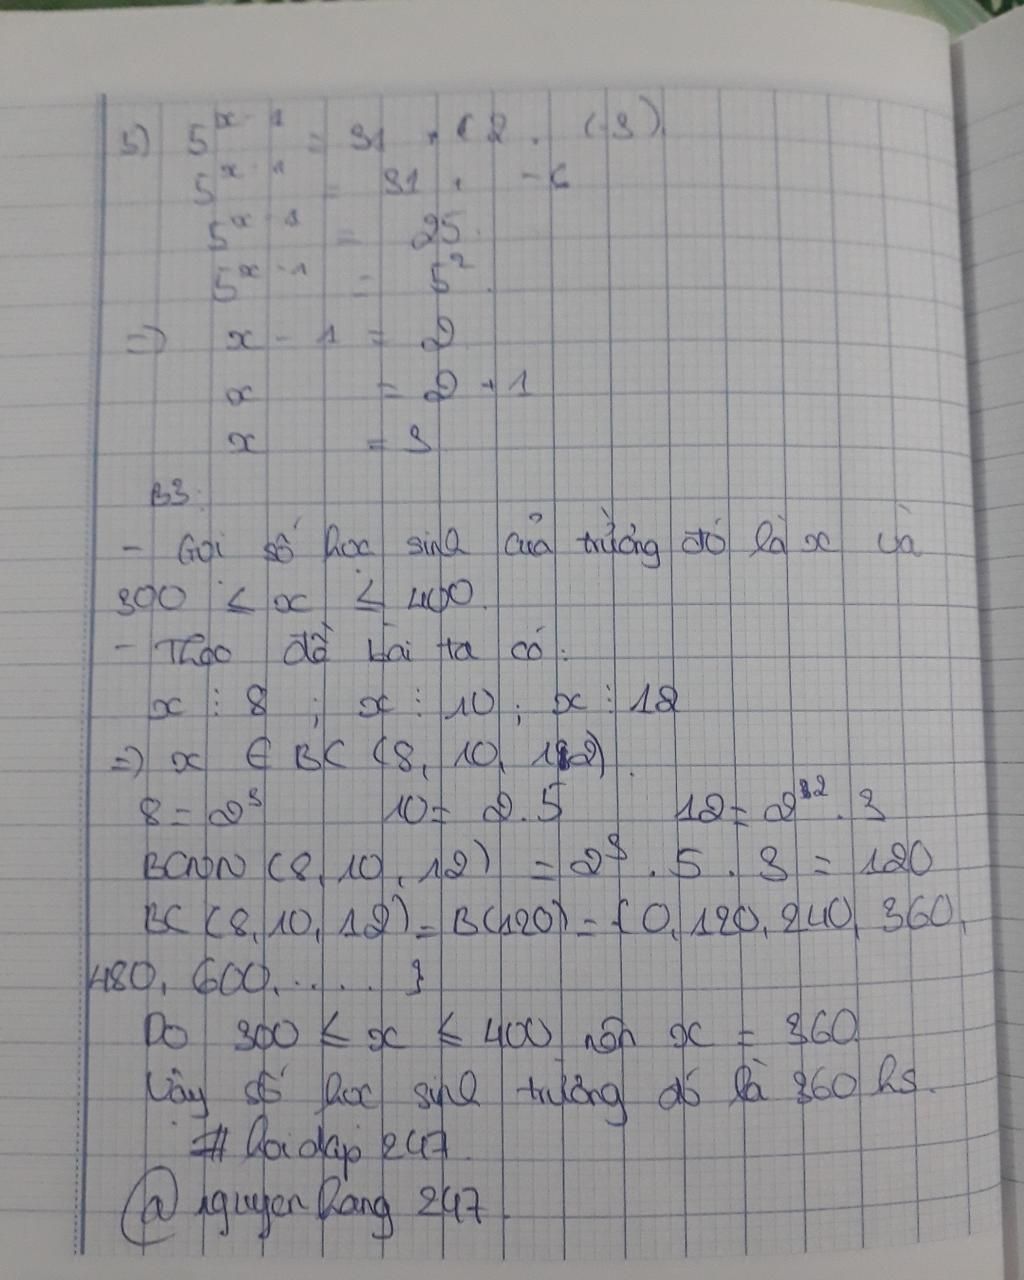 5) 5^x-1 = 31 + (2 . (-3)
5^x-1 = 31 + -6
5^x-1 = 25
5^x-1 = 5^2
=> x - 1 = 2
x = 2 + 1
x = 3
B3:
- Gọi số học sinh của trường đó là x và
300 ≤ x ≤ 400
- Theo đề bài ta có:
x ⋮ 8 ; x ⋮ 10 ; x ⋮ 12
=> x ∈ BC (8, 10, 12)
8 = 2^3 10 = 2.5 12 = 2^2 . 3
BCNN (8, 10, 12) = 2^3 . 5 . 3 = 120
BC (8, 10, 12) = B(120) = {0, 120, 240, 360,
480, 600, ..... }
Do 300 ≤ x ≤ 400 nên x = 360
Vậy số học sinh trường đó là 360 hs.
# hoidap 247
@ nguyenhang 247